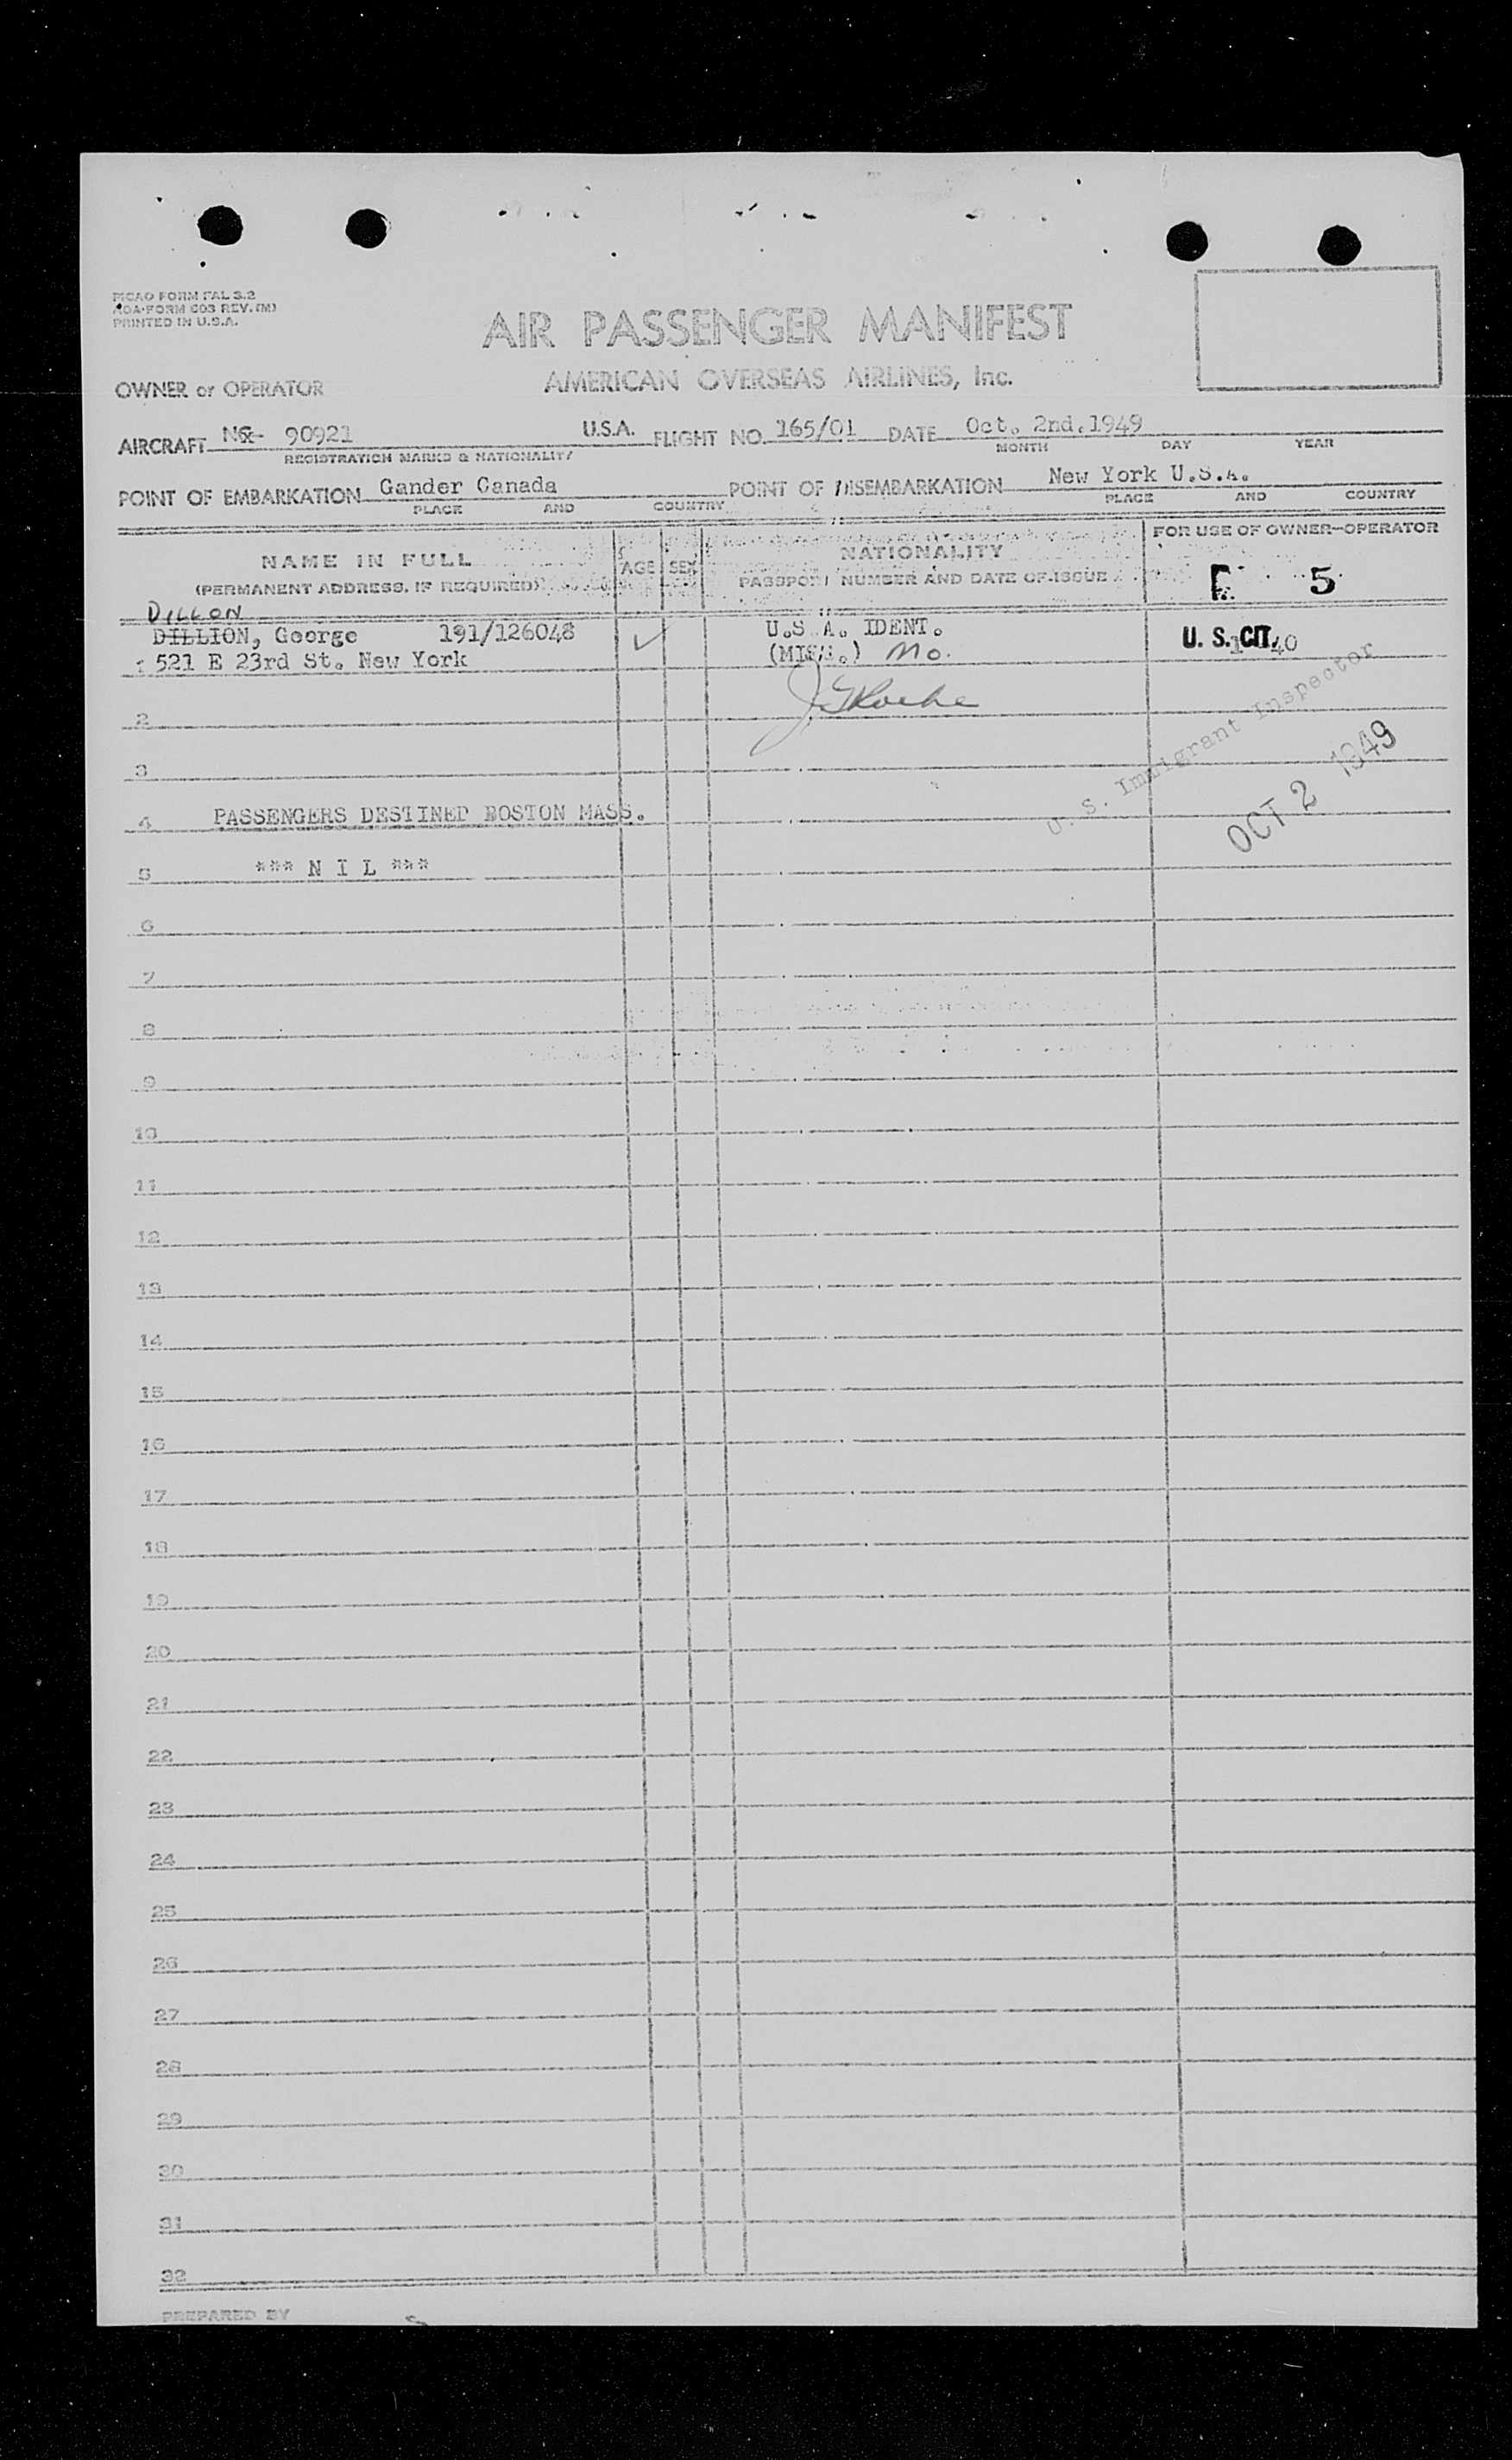 PICAO FORM FAL 3.2
AOA-FORM 603 REV. (M)
PRINTED IN U.S.A.
AIR PASSENGER MANIFEST
OWNER or OPERATOR AMERICAN OVERSEAS AIRLINES, Inc.
AIRCRAFT 90921 U.S.A. FLIGHT NO. 165/01 DATE Oct. 2nd. 1949
REGISTRATION MARKS & NATIONALITY MONTH DAY YEAR
POINT OF EMBARKATION Gander Canada POINT OF DISEMBARKATION New York U.S.A.
PLACE AND COUNTRY PLACE AND COUNTRY
FOR USE OF OWNER-OPERATOR
NAME IN FULL AGE SEX NATIONALITY
(PERMANENT ADDRESS, IF REQUIRED) PASSPORT NUMBER AND DATE OF ISSUE
5
DILLON
DILLION, George 191/126048 U.S.A. IDENT. U. S. CIT.
1 521 E 23rd St. New York No.
2
U. S. Immigrant Inspector
3
OCT 2 1949
4 PASSENGERS DESTINED BOSTON MASS.
5 *** N I L ***
6
7
8
9
10
11
12
13
14
15
16
17
18
19
20
21
22
23
24
25
26
27
28
29
30
31
32
PREPARED BY